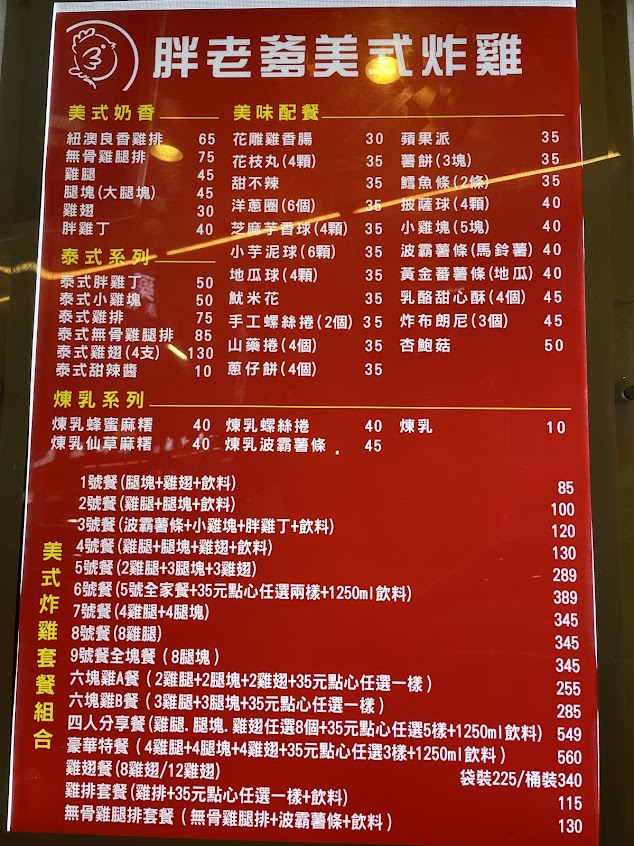 胖老爹美式炸雞
美式奶香
紐澳良香雞排 65
無骨雞腿排 75
雞腿 45
腿塊(大腿塊) 45
雞翅 30
胖雞丁 40
泰式系列
泰式胖雞丁 50
泰式小雞塊 50
泰式雞排 75
泰式無骨雞腿排 85
泰式雞翅(4支) 130
泰式甜辣醬 10
美味配餐
花雕雞香腸 30
花枝丸(4顆) 35
甜不辣 35
洋蔥圈(6個) 35
芝麻芋香球(4顆) 35
小芋泥球(6顆) 35
地瓜球(4顆) 35
魷米花 35
手工螺絲捲(2個) 35
山藥捲(4個) 35
蔥仔餅(4個) 35
蘋果派 35
薯餅(3塊) 35
鱈魚條(2條) 35
披薩球(4顆) 40
小雞塊(5塊) 40
波霸薯條(馬鈴薯) 40
黃金蕃薯條(地瓜) 40
乳酪甜心酥(4個) 45
炸布朗尼(3個) 45
杏鮑菇 50
煉乳系列
煉乳蜂蜜麻糬 40 煉乳螺絲捲 40 煉乳 10
煉乳仙草麻糬 40 煉乳波霸薯條 45
美式炸雞套餐組合
1號餐(腿塊+雞翅+飲料) 85
2號餐(雞腿+腿塊+飲料) 100
3號餐(波霸薯條+小雞塊+胖雞丁+飲料) 120
4號餐(雞腿+腿塊+雞翅+飲料) 130
5號餐(2雞腿+3腿塊+3雞翅) 289
6號餐(5號全家餐+35元點心任選兩樣+1250ml飲料) 389
7號餐(4雞腿+4腿塊) 345
8號餐(8雞腿) 345
9號餐全塊餐(8腿塊) 345
六塊雞A餐(2雞腿+2腿塊+2雞翅+35元點心任選一樣) 255
六塊雞B餐(3雞腿+3腿塊+35元點心任選一樣) 285
四人分享餐(雞腿.腿塊.雞翅任選8個+35元點心任選5樣+1250ml飲料) 549
豪華特餐(4雞腿+4腿塊+4雞翅+35元點心任選3樣+1250ml飲料) 560
雞翅餐(8雞翅/12雞翅) 袋裝225/桶裝340
雞排套餐(雞排+35元點心任選一樣+飲料) 115
無骨雞腿排套餐(無骨雞腿排+波霸薯條+飲料) 130